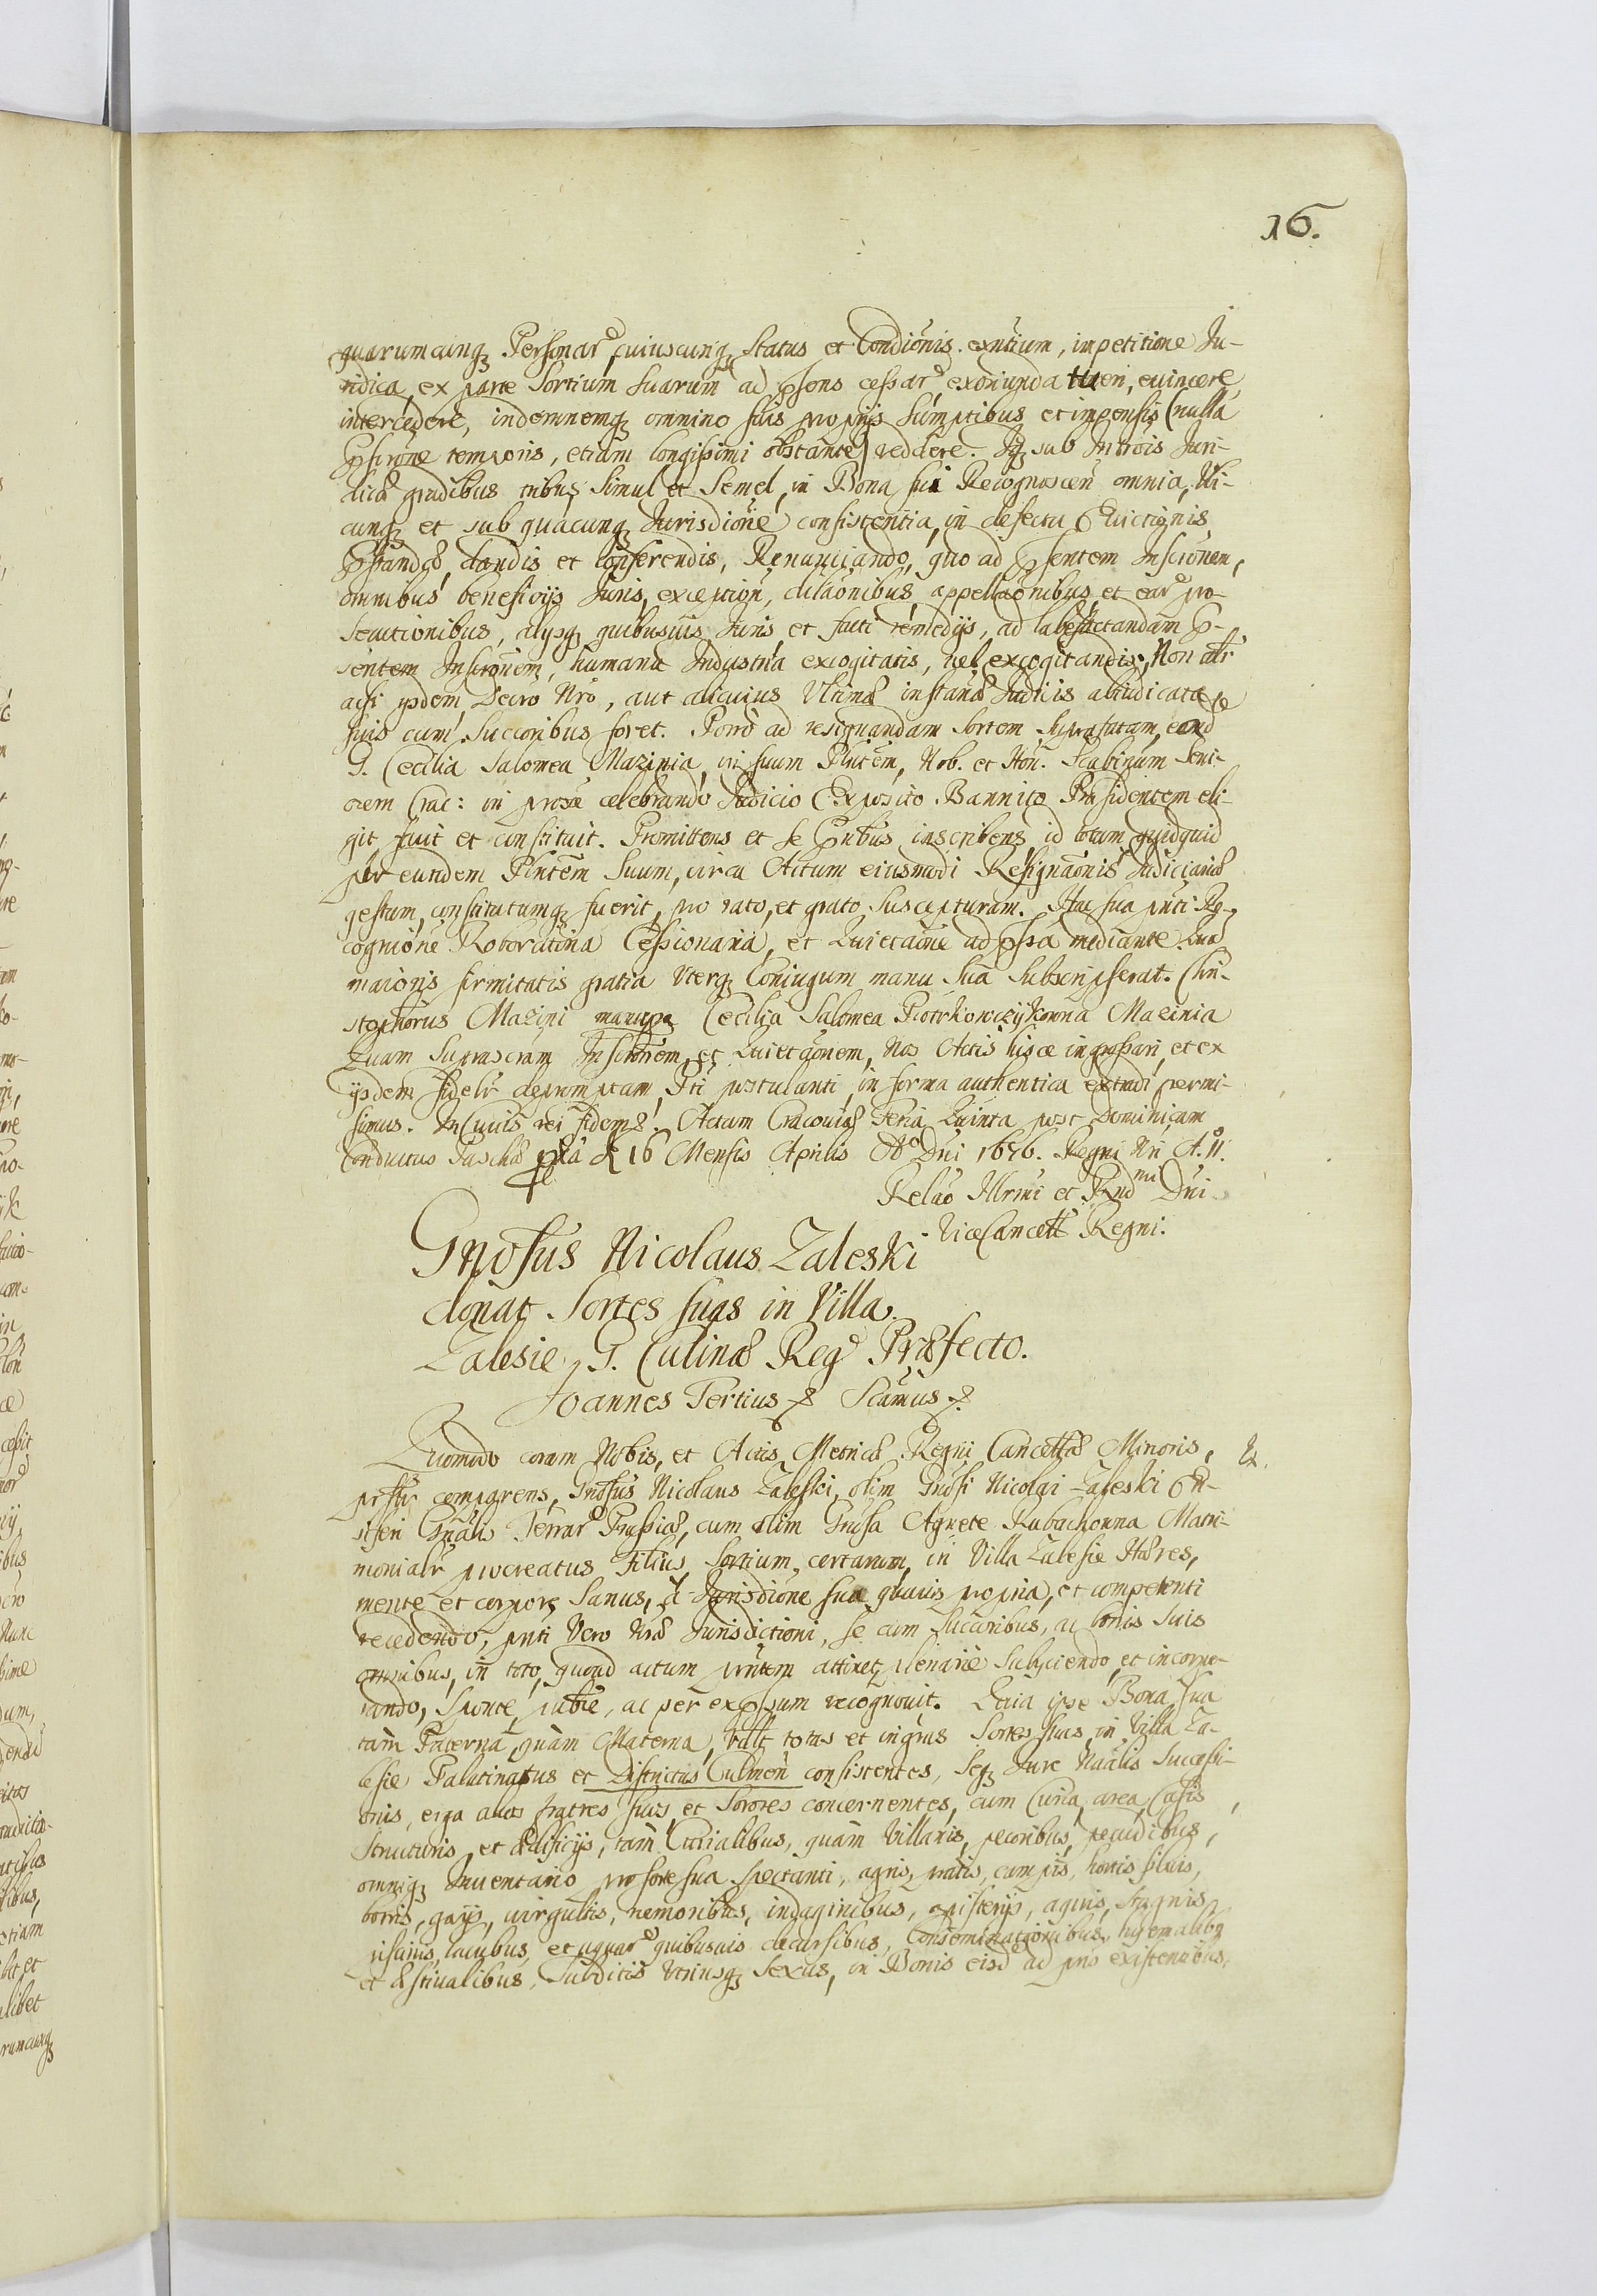 16.
quarumcunq Personar cuiuscunq Status et Condionis exntium, impetitione Ju-
ridica, ex parte Sortium Suarum ad psens cessar exoriunda tueri, euincere
intercedere, indemnemq omnino suis proprijs Sumptibus et impensis (nulla
pscrone temporis, etiam longissimi obstante) reddere. Idq sub Introis Juri-
dicis gradibus tribus Simul et Semel, in Bona sui Recognoscen omnia, Vbi-
cunq et sub quacunq Jurisdione consistentia, in defectu Euictionis
pstandis, dandis et conferendis, Renunciando, quo ad psentem Inscrionem,
omnibus beneficijs Juris, exception, dilaonibus appellaonibus, et ear pro-
secutionibus, alijsq quibusuis Juris et facti remedijs, ad labefactandam p-
sentem Inscrionem, humana Industria excogitatis, uel excogitandis, Non altr
acsi ijsdem Decro Nro, aut alicuius Vltimae instan Judicis abiudicata
suis cum Succoribus foret. Porro ad resignandam Sortem Suprafatam, eand
G. Cecilia Salomea Mazinia, in suum Plntem, Nob. et Hon. Scabinum Seni-
orem Crac: in proxe celebrando Judicio Exposito Bannito Praesidentem eli-
git fecit et constituit. Promittens et se pntibus inscribens, id totum quidquid
per eundem Plntem Suum, circa Actum eiusmodi Resignaonis Judiciariae
gestum, constitutumq fuerit, pro rato, et grato Suscepturam. Hac sua pnti Re-
cognione Roboratoria Cessionaria, et Quietaone ad pssa mediante. Quae
maioris firmitatis gratia Vterq Coniugum manu Sua Subscripserat. Chri-
stophorus Mazini manupa Cecilia Salomea Piotrkowczykowna Mazinia
Quam Suprascram Inscrionem, et Quietaonem, Nos Actis hisce ingrossari, et ex
ijsdem fidelr depromptam, Pti postulanti, in forma authentica extradi permi-
simus. In Cuius rei fidem &. Actum Cracouiae Feria Quinta post Dominicam
Conductus Paschae pxa d 16 Mensis Aprilis Ao Dni 1676. Regni Nri A. II.
Relao Illrmi et Rndmi Dni
ViceCancell Regni.
Gnosus Nicolaus Zaleski
donat Sortes suas in Villa
Zalesie, G. Culinae Reg Praefecto.
Joannes Tertius & Scamus &.
Quomodo coram Nobis, et Actis Metricae Regni Cancellae Minoris, &.
psr comparens, Gnosus Nicolaus Zaleski, olim Gnosi Nicolai Zaleski En-
siferi Gnalis Terrar Prussiae, cum olim Gnosa Agnete Kubachowna Matri-
monialr procreatus Filius, Sortium certarum, in Villa Zalesie Haeres,
mente et corpore Sanus, à Jurisdione sua quauis propria, et competenti
recedendo, pnti Vero Nrae Jurisdictioni, se cum Succoribus, ac bonis Suis
omnibus, in toto, quoad actum pntem attinet, plenarie Subijciendo, et incorpo-
rando, Sponte, puble, ac per expssum recognouit. Quia ipse Bona sua
tam Paterna quam Materna, Vult totas et ingras Sortes suas, in Villa Za-
lesie Palatinatus et Districtus Culmen consistentes, Seq Jure Naalis Successi-
onis, erga alios fratres suos, et Sorores concernentes, cum Curia, area, Casis,
Structuris et aedificijs, tam Curialibus, quam Villaris, pecoribus, pecudibus,
omniq Inuentario pro sorte sua Spectanti, agris, pratis, campis, hortis siluis,
borris, gays, uirgultis, nemoribus, indaginibus, apisterijs, aquis, Stagnis,
piscinis, lacubus, et aquar quibusuis decursibus, Conseminationibus, hyemalibq
et aestiualibus, Subditis Vtriusq Sexus, in Bonis eisd ad pns existentibus,